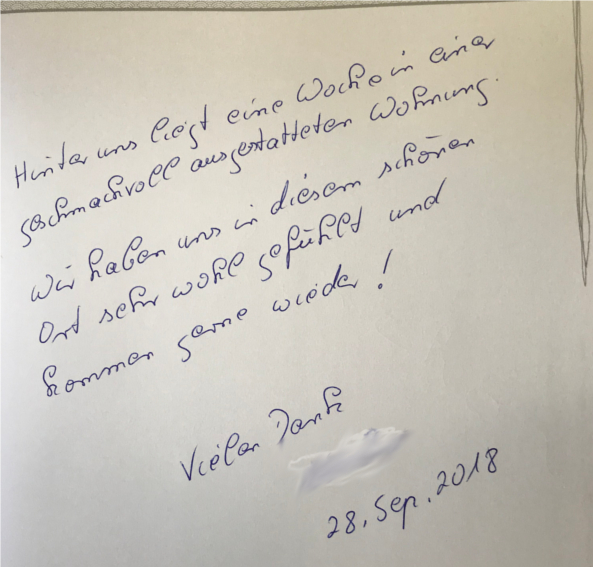 Hinter uns liegt eine Woche in einer
geschmackvoll ausgestatteten Wohnung.
Wir haben uns in diesem schönen
Ort sehr wohl gefühlt und
kommen gerne wieder!
Vielen Dank
28. Sep. 2018